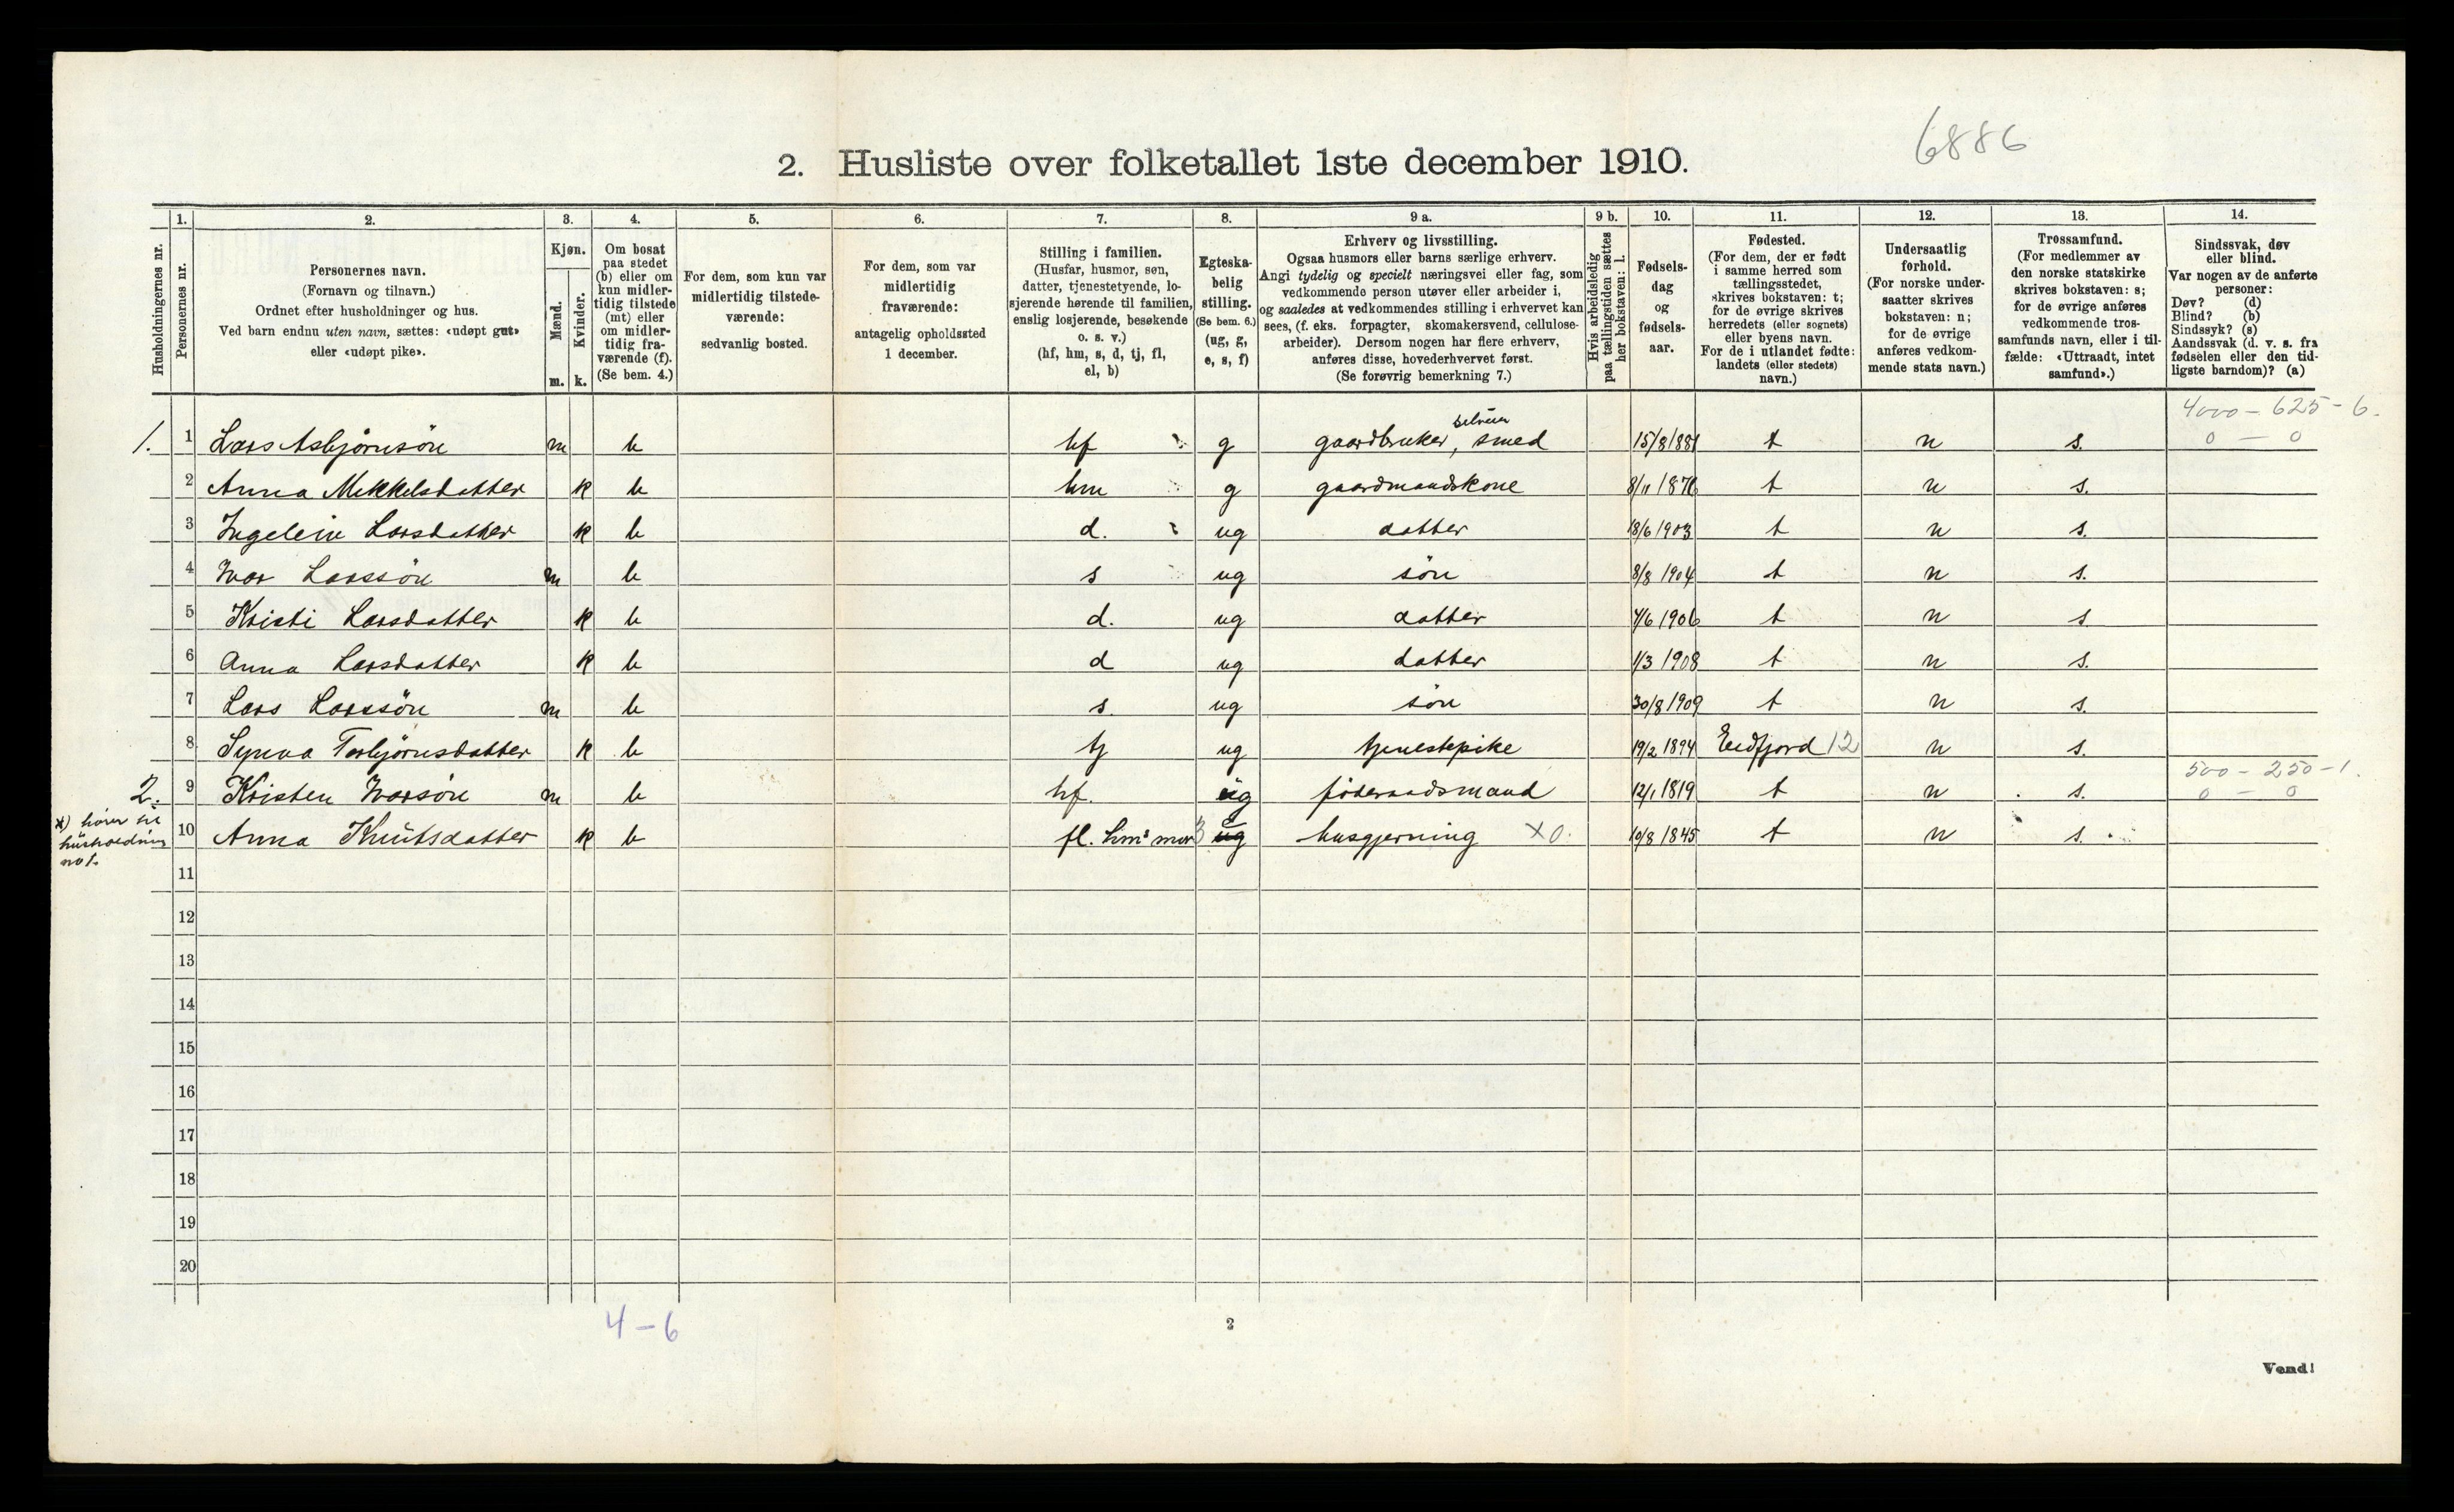 6886
2. Husliste over folketallet 1ste december 1910.
Husholdningernes nr.
1. Personernes nr.
2. Personernes navn.
(Fornavn og tilnavn.)
Ordnet efter husholdninger og hus.
Ved barn endnu uten navn, sættes: «udøpt gut»
eller «udøpt pike».
3. Kjøn.
Mænd. m.
Kvinder. k.
4. Om bosat
paa stedet
(b) eller om
kun midler-
tidig tilstede
(mt) eller
om midler-
tidig fra-
værende (f).
(Se bem. 4.)
5. For dem, som kun var
midlertidig tilstede-
værende:
sedvanlig bosted.
6. For dem, som var
midlertidig
fraværende:
antagelig opholdssted
1 december.
7. Stilling i familien.
(Husfar, husmor, søn,
datter, tjenestetyende, lo-
sjerende hørende til familien,
enslig losjerende, besøkende
o. s. v.)
(hf, hm, s, d, tj, fl,
el, b)
8. Egteska-
belig
stilling.
(Se bem. 6.)
(ug, g,
e, s, f)
9 a. Erhverv og livsstilling.
Ogsaa husmors eller barns særlige erhverv.
Angi tydelig og specielt næringsvei eller fag, som
vedkommende person utøver eller arbeider i,
og saaledes at vedkommendes stilling i erhvervet kan
sees, (f. eks. forpagter, skomakersvend, cellulose-
arbeider). Dersom nogen har flere erhverv,
anføres disse, hovederhvervet først.
(Se forøvrig bemerkning 7.)
9 b. Hvis arbeidsledig
paa tællingstiden sættes
her bokstaven: l.
10. Fødsels-
dag
og
fødsels-
aar.
11. Fødested.
(For dem, der er født
i samme herred som
tællingsstedet,
skrives bokstaven: t;
for de øvrige skrives
herredets (eller sognets)
eller byens navn.
For de i utlandet fødte:
landets (eller stedets)
navn.)
12. Undersaatlig
forhold.
(For norske under-
saatter skrives
bokstaven: n;
for de øvrige
anføres vedkom-
mende stats navn.)
13. Trossamfund.
(For medlemmer av
den norske statskirke
skrives bokstaven: s;
for de øvrige anføres
vedkommende tros-
samfunds navn, eller i til-
fælde: «Uttraadt, intet
samfund».)
14. Sindssvak, døv
eller blind.
Var nogen av de anførte
personer:
Døv? (d)
Blind? (b)
Sindssyk? (s)
Aandssvak (d. v. s. fra
fødselen eller den tid-
ligste barndom)? (a)
4000 - 625 - 6.
selveier
1. 1 Lars Asbjörnsön m b hf g gaardbruker, smed 15/8 1881 t n s. 0 - 0
2 Anna Mikkelsdatter k b hm g gaardmandskone 8/11 1876 t n s.
3 Ingelein Larsdatter k b d. ug datter 18/6 1903 t n s.
4 Ivar Larssön m b s ug sön 8/8 1904 t n s.
5 Kristi Larsdatter k b d. ug datter 4/6 1906 t n s.
6 Anna Larsdatter k b d ug datter 1/3 1908 t n s.
7 Lars Larssön m b s. ug sön 30/8 1909 t n s.
8 Synva Torbjörnsdatter k b tj ug tjenestepike 19/2 1894 Eidfjord 12 n s.
500 - 250 - 1.
2. 9 Kristen Ivarsön m b hf. ug föderaadsmand 12/1 1819 t n s. 0 - 0
*) hører til
husholdning
no 1.
10 Anna Knutsdatter k b fl. hm's mor 3 ug husgjerning X0. 10/8 1845 t n s.
11
12
13
14
15
16
17
18
19
20
4 - 6
2
Vend!